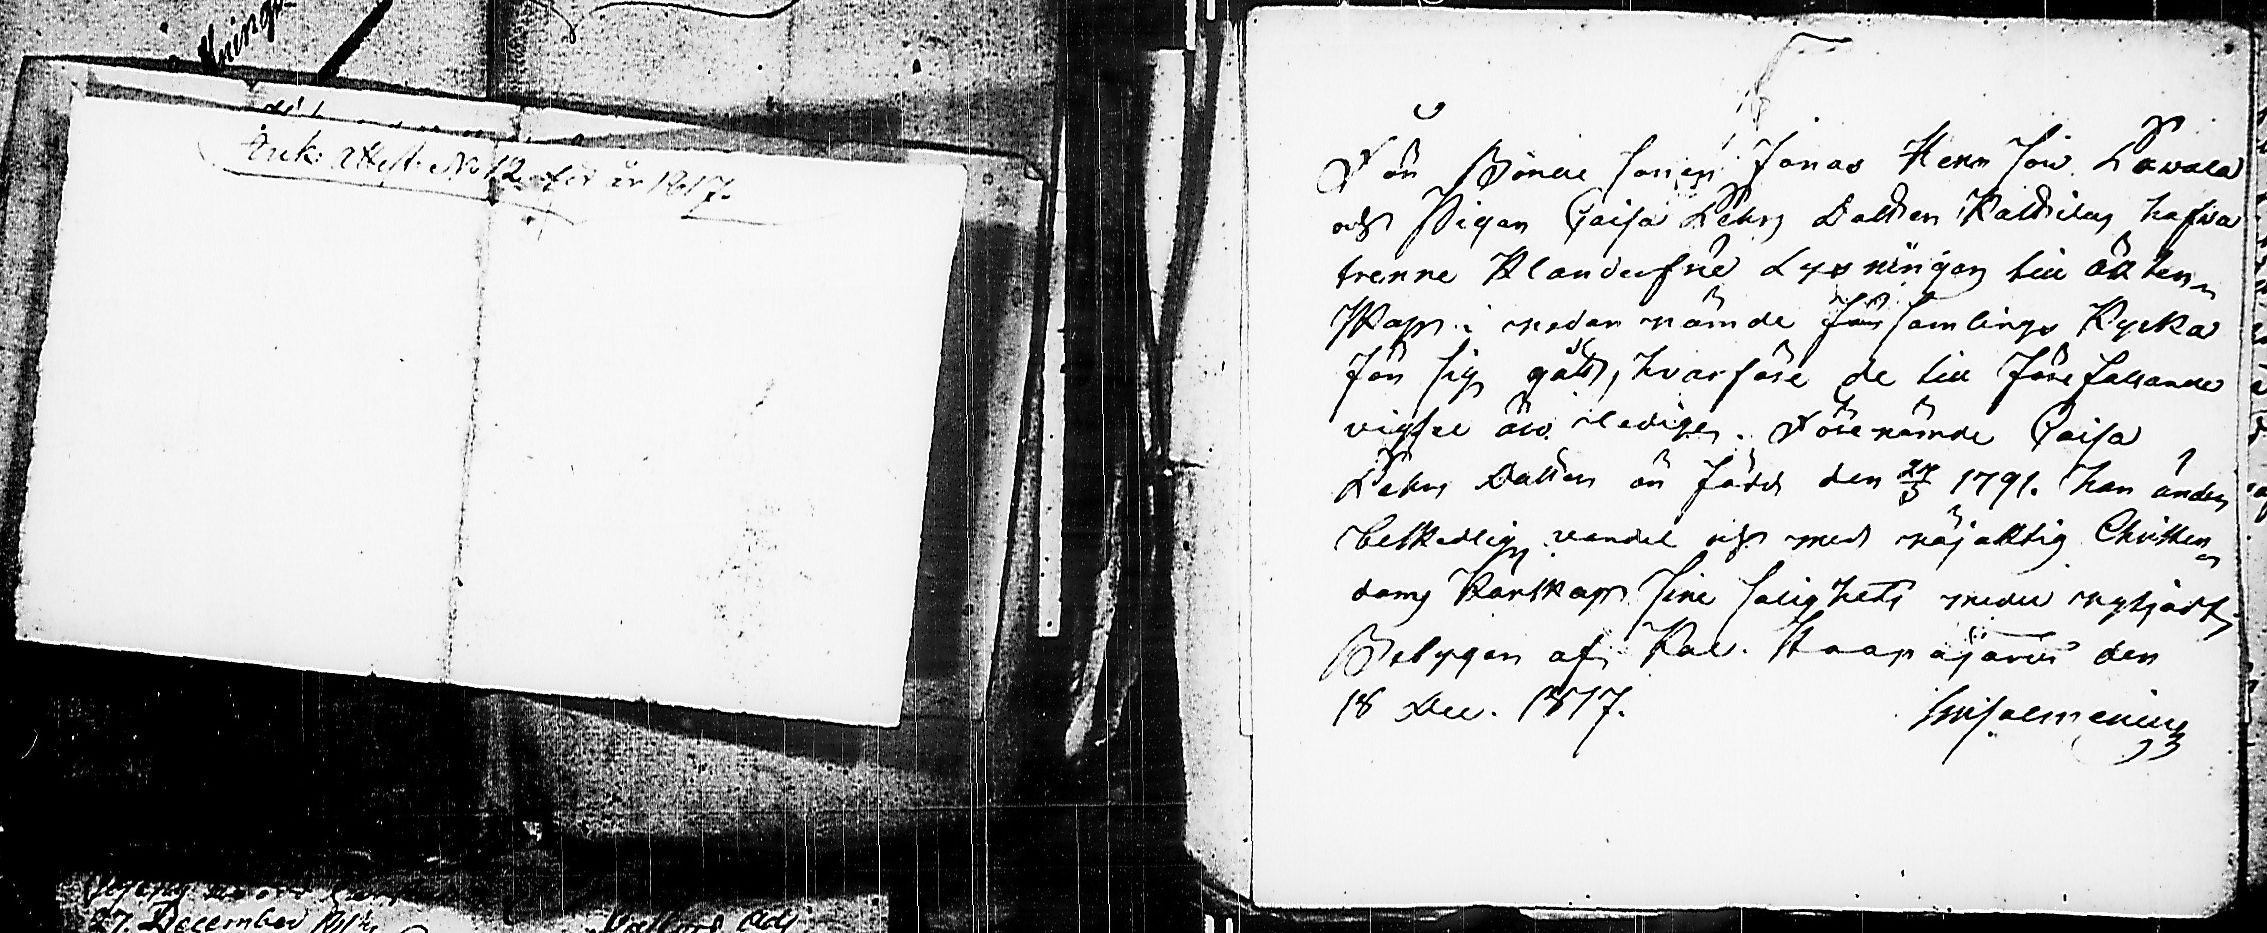 Ink: Attest. No 12. för år 1817.
För Bonde Sonen Jonas Henr: Son Lawala
och Pigan Caisa Pehrs Dotter Kattilus hafwa
trenne Klanderfrie Lysningar till Äkten-
skap i nedan nämde Församlings Kyrka
för sig gått, hvarföre de till förefallande
vigsel äro ledige. Förenämde Caisa
Pehrs Dotter är född den 27/3 1791. har under
beskedlig vandel och med nöjaktig Christen-
doms Kunskap sine salighets medel nyttjadt,
Betygar af Kal. Haapajärvi den
18 Dec. 1817.
27. December